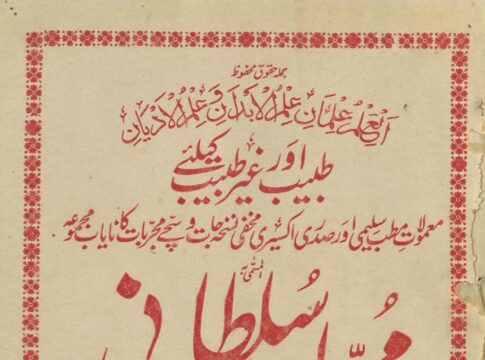 جملہ حقوق محفوظ
اَلْعِلْمُ عِلْمَانِ عِلْمُ الْاَبْدَانِ وَعِلْمُ الْاَدْيَانِ
طبیب اور غیر طبیب کیلئے
معمولات مطب سلیمی اور صدری اکسیری مخفی نسخہ جات و سچے مجربات کا نایاب مجموعہ
المسمّٰی بہ
سُلطانی